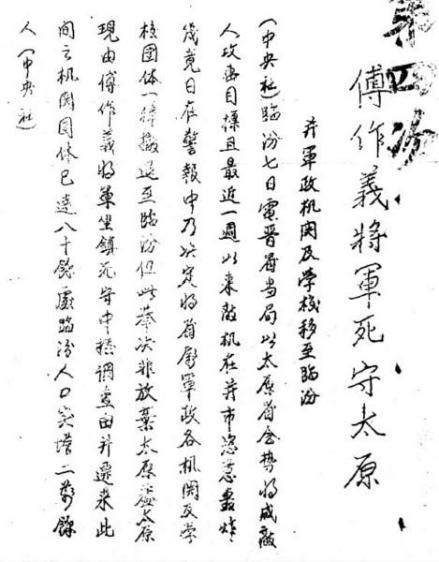 第四份
傅作義將軍死守太原
并軍政机関及学校移至臨汾
(中央社)臨汾七日電晋省当局以太原省会势将成敵
人攻击目標且最近一週以来敵机在并市恣意轟炸
終日在警報中乃决定将省府軍政各机関及学
校团体一律撤退至臨汾但此举决非放棄太原
現由傅作義将軍坐鎮死守中据調查由并遷来此
间之机関团体已達八十餘處臨汾人口突增二萬餘
人(中央社)